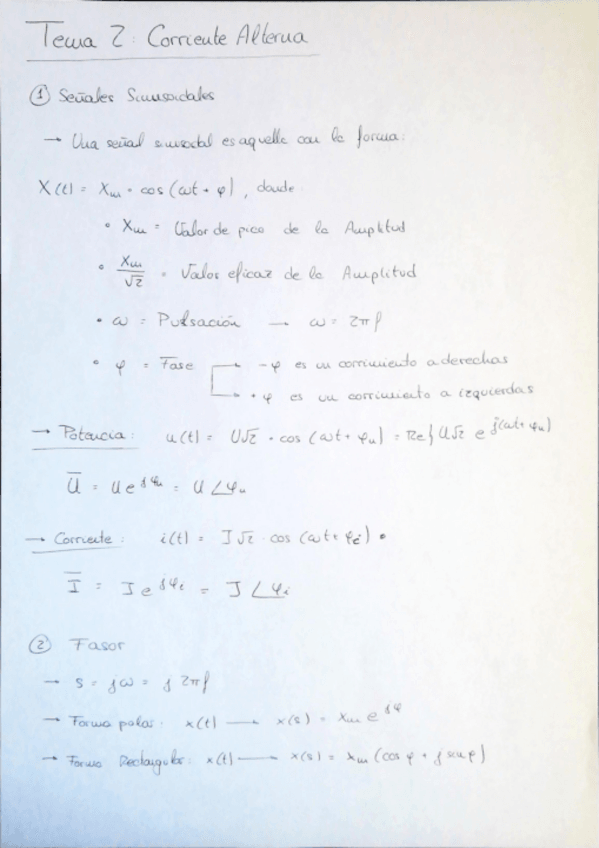 Tema 2: Corriente Alterna
① Señales Sinusoidales
→ Una señal sinusoidal es aquella con la forma:
X(t) = Xm · cos (ωt + φ), donde:
• Xm = Valor de pico de la Amplitud
• Xm/√2 = Valor eficaz de la Amplitud
• ω = Pulsación → ω = 2πf
• φ = Fase → -φ es un corrimiento a derechas
→ +φ es un corrimiento a izquierdas
→ Potencia: u(t) = U√2 · cos (ωt + φu) = Re{U√2 e^j(ωt+φu)
U̅ = U e^jφu = U∠φu
→ Corriente: i(t) = I√2 · cos (ωt + φi) •
I̅ = I e^jφi = I∠φi
② Fasor
→ s = jω = j 2πf
→ Forma polar: x(t) → x(s) = xm e^jφ
→ Forma Rectangular: x(t) → x(s) = xm (cos φ + j sen φ)